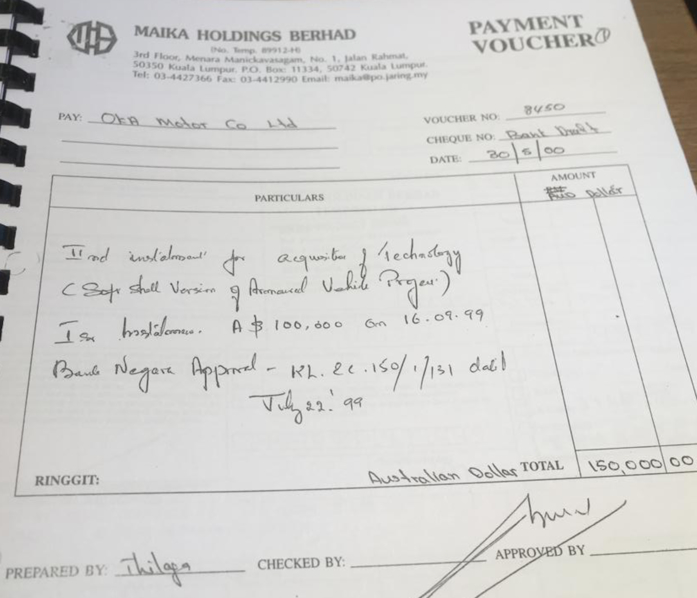 MAIKA HOLDINGS BERHAD
(No. Temp. 89912-H)
3rd Floor, Menara Manickavasagam, No. 1, Jalan Rahmat,
50350 Kuala Lumpur. P.O. Box: 11334, 50742 Kuala Lumpur.
Tel: 03-4427366 Fax: 03-4412990 Email: maika@po.jaring.my
PAYMENT
VOUCHER
PAY: OKA Motor Co Ltd
VOUCHER NO: 8450
CHEQUE NO: Bank Draft
DATE: 30/5/00
PARTICULARS
AMOUNT
Dollar
IInd instalment for acquisition of Technology
(Soft Shell Version of Armoured Vehicle Project)
Ist Instalment. A$ 100,000 on 16.09.99
Bank Negara Approval - KL. EC.150/1/131 dated
July 22' 99
RINGGIT:
Australian Dollar TOTAL 150,000 00
PREPARED BY: Thilaga
CHECKED BY:
APPROVED BY